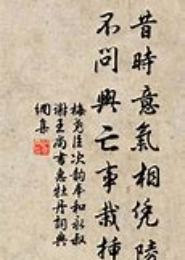 昔時意氣相凭陵
不問興亡事栽插
梅堯臣次韵奉和永叔
謝王尚書惠牡丹詞典
網集